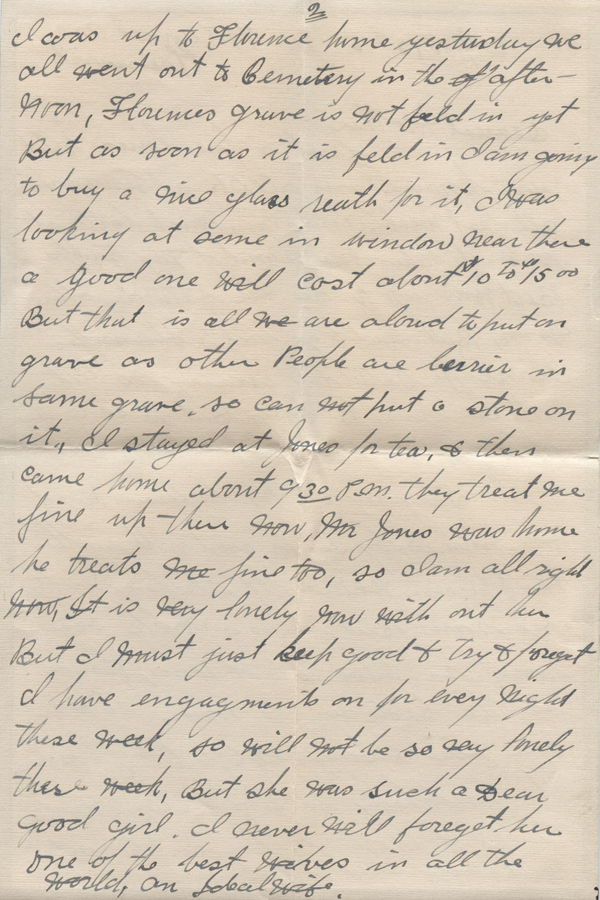 2
I was up to Florence home yesterday we
all went out to Cemetery in the af after-
noon, Florences grave is not feld in yet
But as soon as it is feld in I am going
to buy a nice glass reath for it, I was
looking at some in window near there
a good one will cost about $10 to $15 00
But that is all we are aloud to put on
grave as other People are berrier in
same grave, so can not put a stone on
it., I stayed at Jones for tea, & then
came home about 9 30 P.M. they treat me
fine up there now, Mr Jones was home
he treats me fine too, so I am all right
now, It is very lonely now with out her
But I must just keep good & try & foreget
I have engagments on for every night
these week, so will not be so very lonely
these week, But she was such a Dear
good girl. I never will foreget her
One of the best wives in all the
world, an Ideal wife.